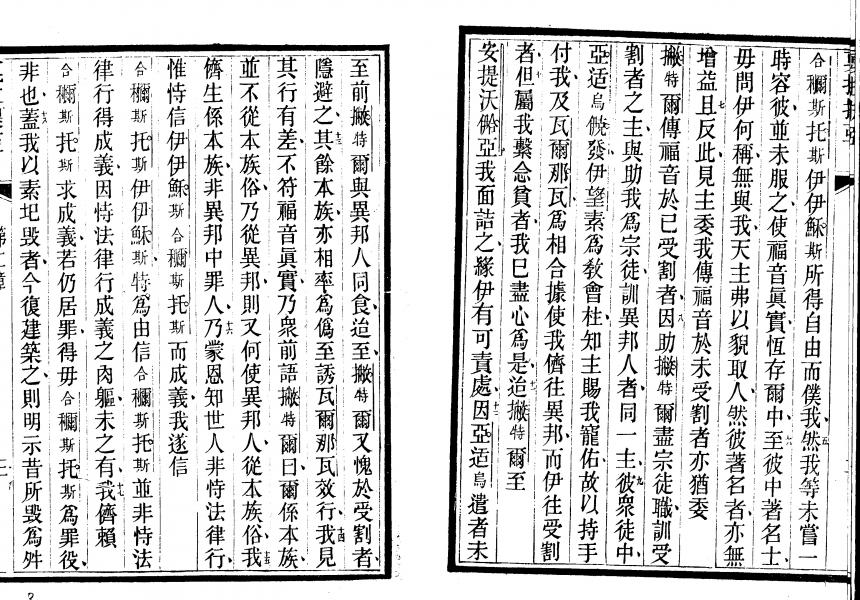 合穪斯托斯伊伊穌斯所得自由而僕我然我等未嘗一
時容彼並未服之使福音眞實恆存爾中至彼中著名士
毋問伊何稱無與我天主弗以貌取人然彼著名者亦無
增益且反此見主委我傳福音於未受割者亦猶委
撇特爾傳福音於已受割者因助撇特爾盡宗徒職訓受
割者之主與助我爲宗徒訓異邦人者同一主彼衆徒中
亞适烏饒發伊望素爲教會柱知主賜我寵佑故以持手
付我及瓦爾那瓦爲相合據使我儕往異邦而伊往受割
者但屬我繫念貧者我巳盡心爲是迨撇特爾至
安提沃俙亞我面詰之緣伊有可責處因亞适烏遣者未
至前撇特爾與異邦人同食迨至撇特爾又愧於受割者
隱避之其餘本族亦相率爲僞至誘瓦爾那瓦效行我見
其行有差不符福音眞實乃衆前語撇特爾曰爾係本族
並不從本族俗乃從異邦則又何使異邦人從本族俗我
儕生係本族非異邦中罪人乃蒙恩知世人非恃法律行
惟恃信伊伊穌斯合穪斯托斯而成義我遂信
合穪斯托斯伊伊穌斯特爲由信合穪斯托斯並非恃法
律行得成義因恃法律行成義之肉軀未之有我儕賴
合穪斯托斯求成義若仍居罪得毋合穪斯托斯爲罪役
非也蓋我以素圯毀者今復建築之則明示昔所毀爲舛
第二章